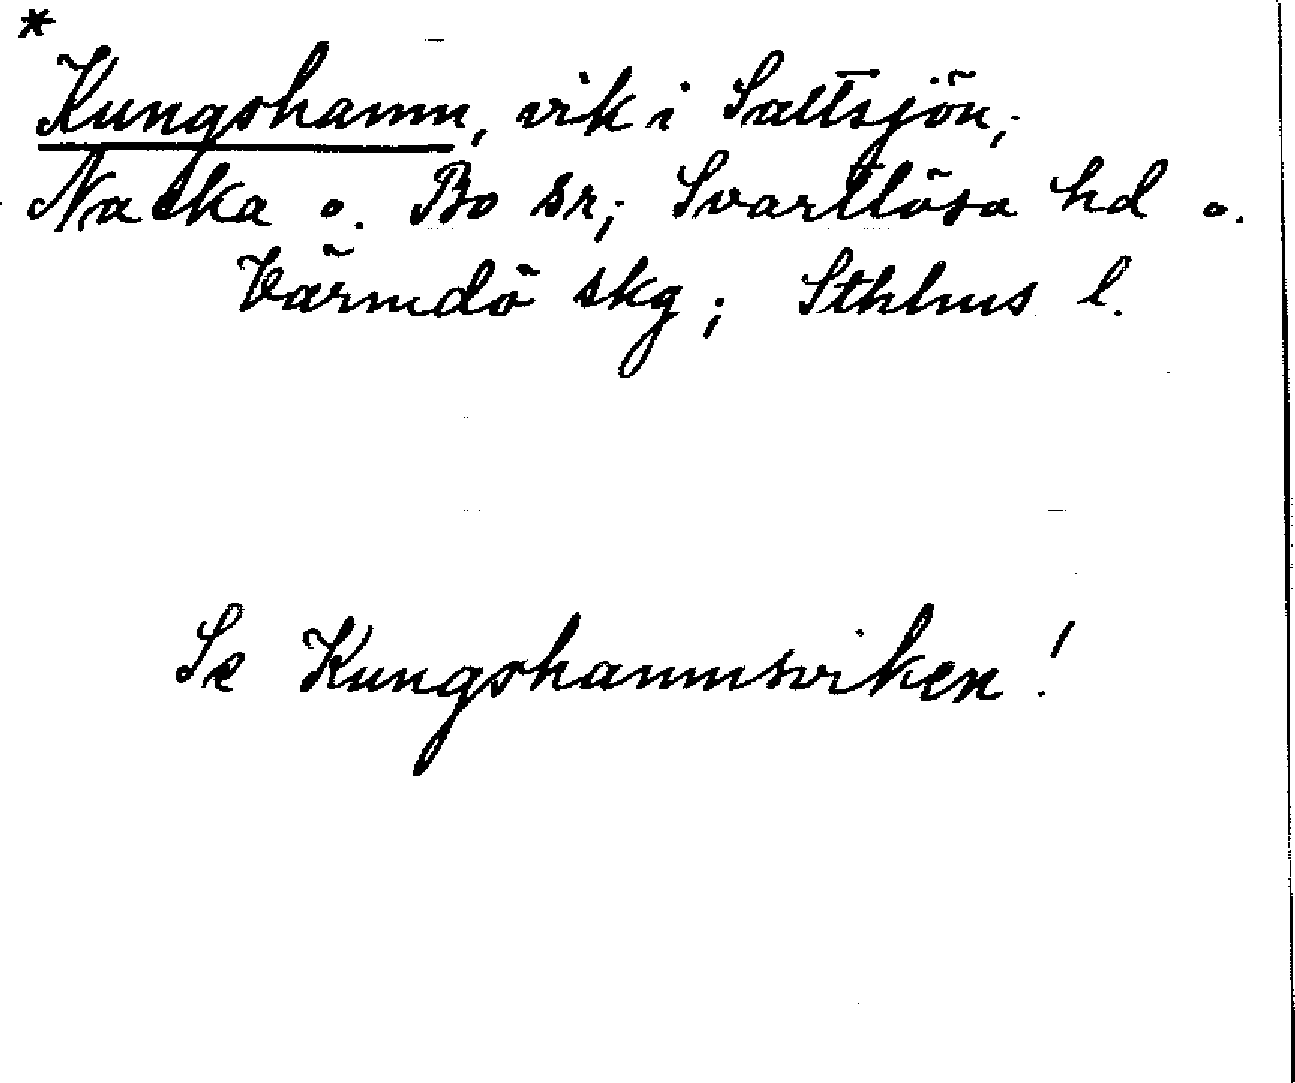 *
Kungshamn, vik i Saltsjön,
Nacka o. Bo sr; Svartlösa hd o.
Värmdö skg; Sthlms l.
Se Kungshamnsviken!